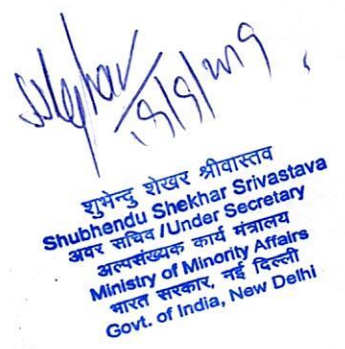 19/9/2019
शुभेन्दु शेखर श्रीवास्तव
Shubhendu Shekhar Srivastava
अवर सचिव /Under Secretary
अल्पसंख्यक कार्य मंत्रालय
Ministry of Minority Affairs
भारत सरकार, नई दिल्ली
Govt. of India, New Delhi